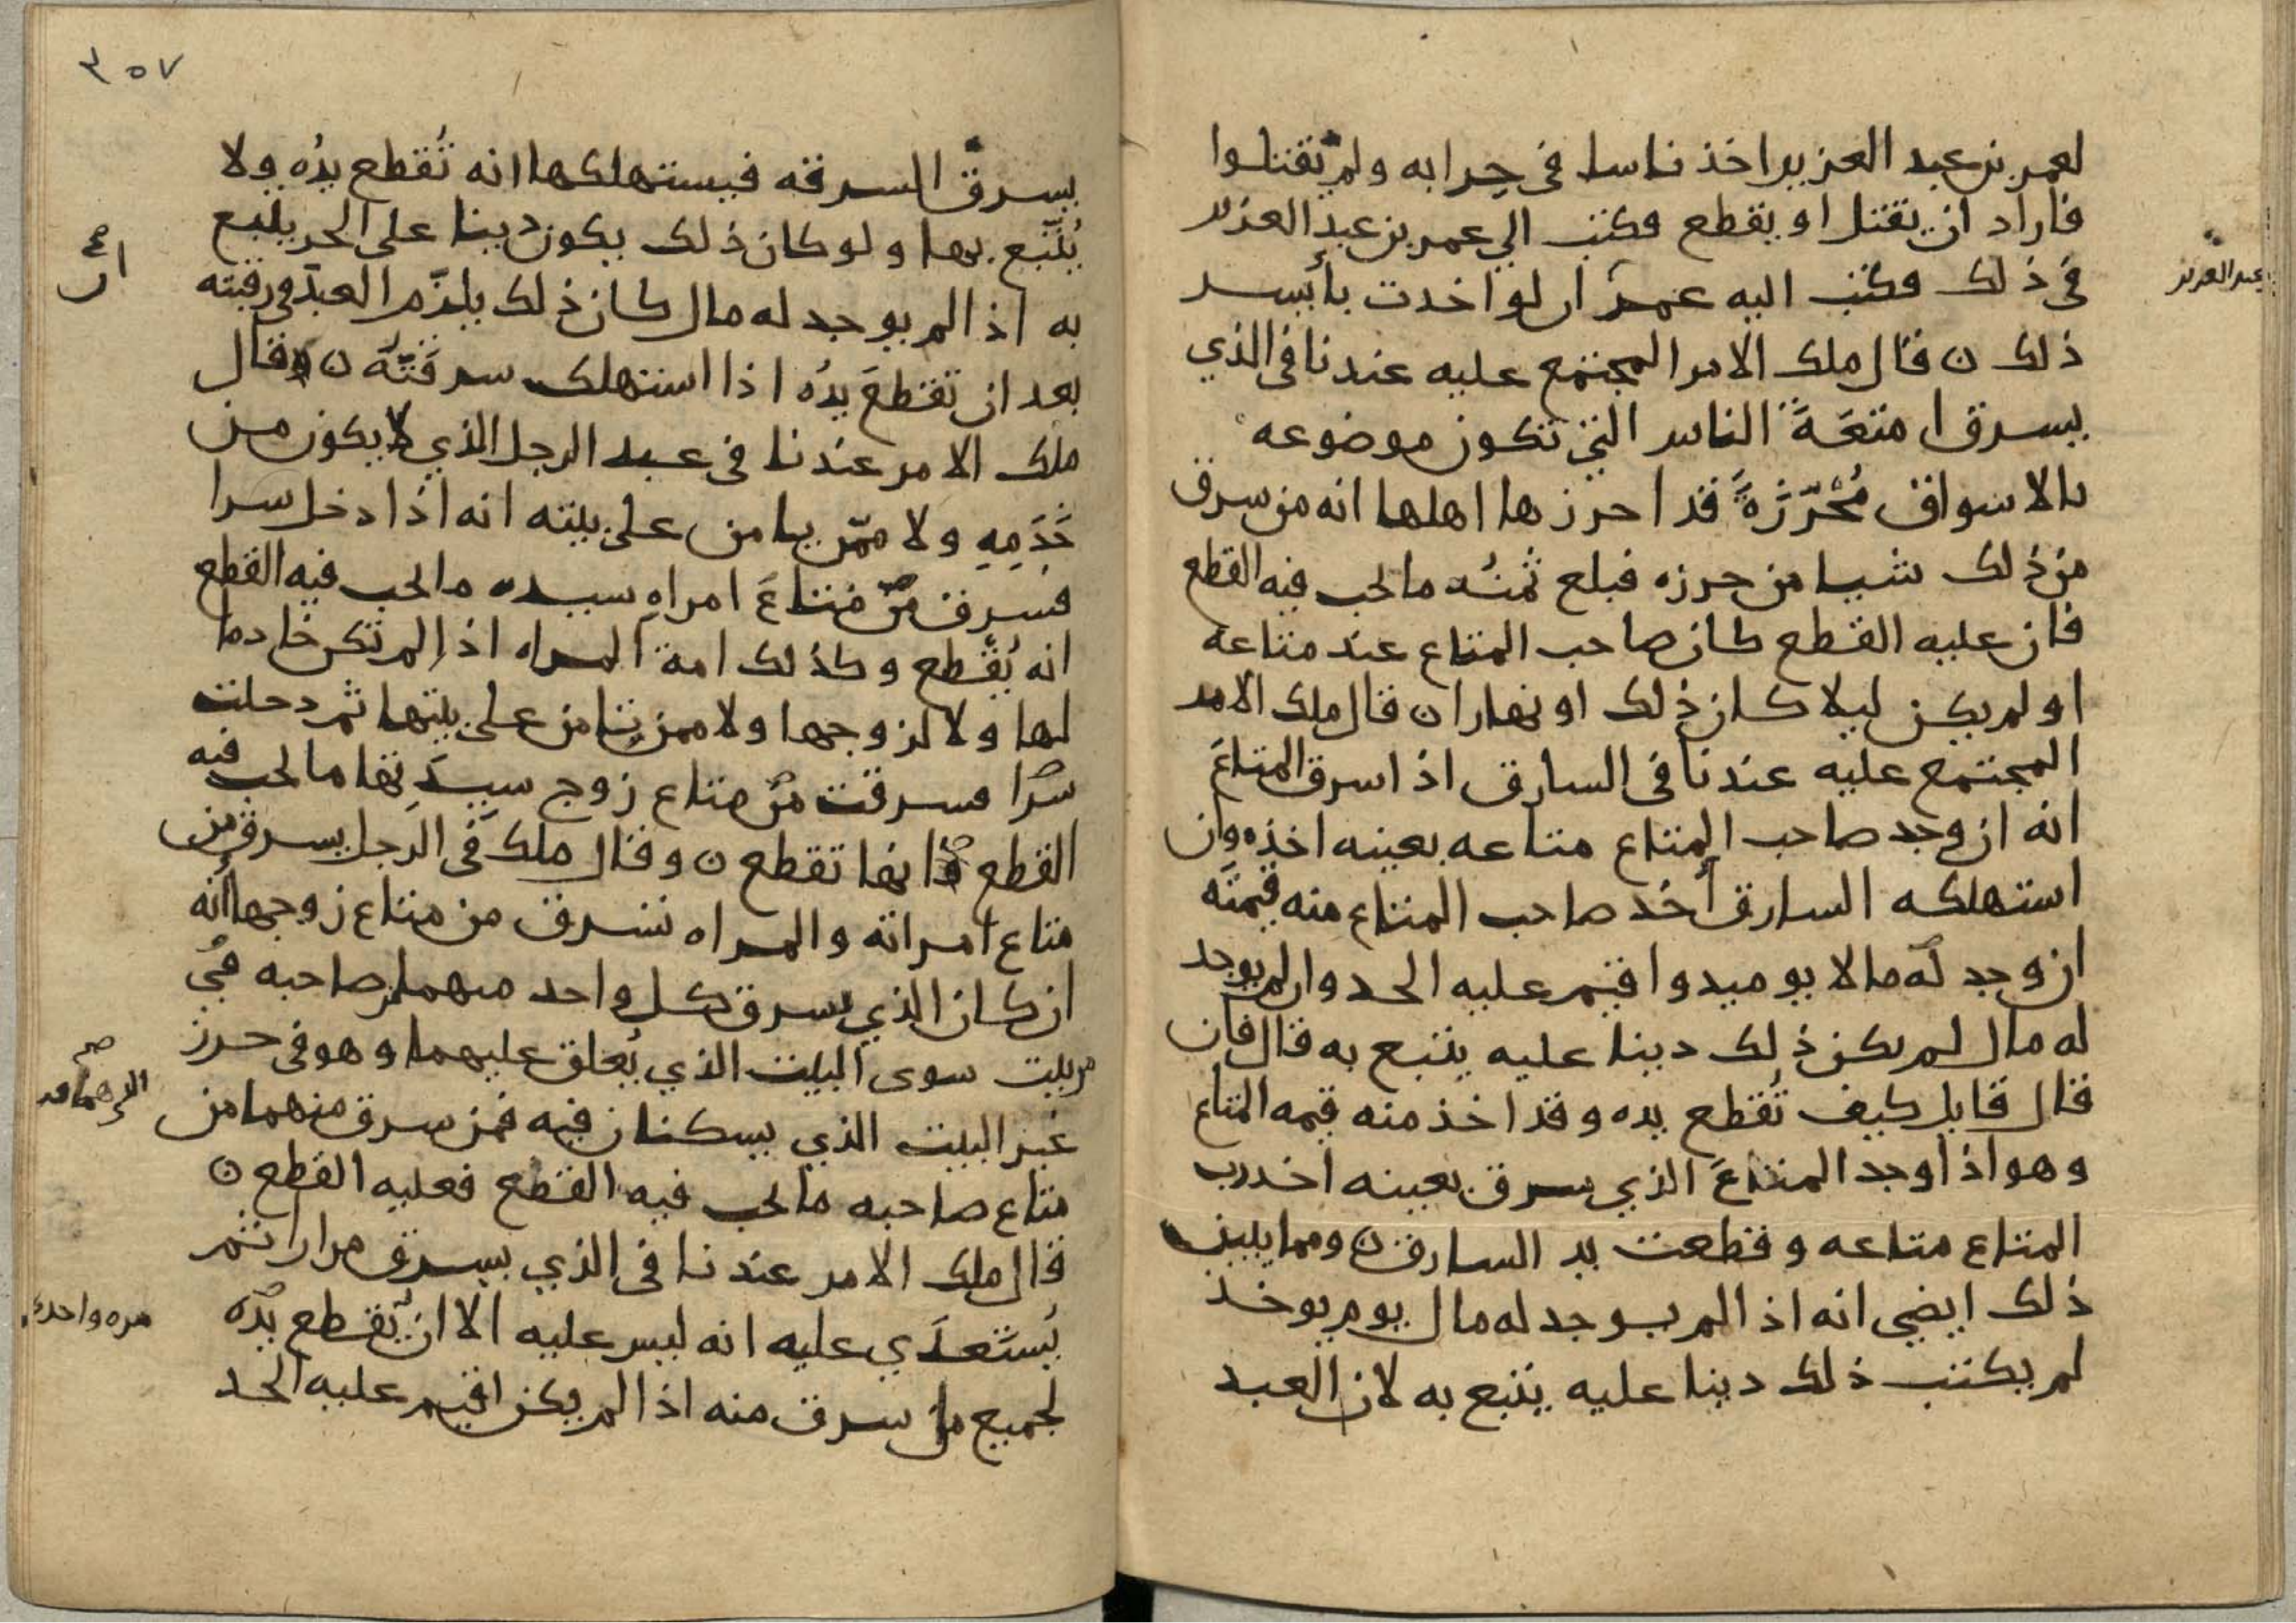 لعمر بن عبد العزيز اخذ ناسا في حرابه ولم يقتلوا
فاراد ان يقتل او يقطع فكتب الي عمر بن عبد العزيز
عبد العزيز
في ذلك فكتب اليه عمر ان لو اخدت بأيسر
ذلك ن قال ملك الامر المجتمع عليه عندنا في الذي
يسرق امتعَةَ الناس التي تكون موضوعه
بالاسواق مُحْرَزَةً قد احرزها اهلها انه من سرق
من ذلك شيا من حرزه فبلع ثمنُه ما يجب فيه القطع
فان عليه القطع كان صاحب المتاع عند متاعه
او لم يكن ليلا كان ذلك او نهارا ن قال ملك الامر
المجتمع عليه عندنا في السارق اذا سرق المتاعَ
انه ان وجد صاحب المتاع متاعه بعينه اخذه وان
استهلكه السارق أخد صاحب المتاع منه قيمتَه
ان وجد له مالا يوميد واقيم عليه الحد وان لم يوجد
له مال لم يكن ذلك دينا عليه يتبع به قال فان
قال قايل كيف تُقطع يده وقد اخذ منه قيمه المتاع
وهو اذا وجد المتاعَ الذي سرق بعينه اخد رب
المتاع متاعه وقطعت يد السارق ن ومما يبين
ذلك ايضي انه اذا لم يوجد له مال يوم يوخذ
لم يكتب ذلك دينا عليه يتبع به لان العبد
٣٥٧
يسرق السرقه فيستهلكها انه تُقطع يدُه ولا
يُتّبع بها ولو كان ذلك يكون دينا على الحر يتبع
به اذا لم يوجد له مال كان ذلك يلزم العبد في رقبته
بعد ان تقطعَ يدُه اذا استهلك سرقتَه ن وقال
ملك الامر عندنا في عبد الرجل الذي لا يكون من
خَدَمِهِ ولا ممّن يامن على بيته انه اذا دخل سرا
فسرق من متاعَ امراهِ سيده ما يجب فيه القطع
انه يُقطع وكذلك امة المراه اذا لم تكن خادما
لها ولا لزوجها ولا ممن تامن على بيتها ثم دحلت
سرّا فسرقت من متاع زوج سيدَتها ما يجب فيه
القطع فانها تقطع ن وقال ملك في الرجل يسرق من
متاع امراته والمراه تسرق من متاع زوجها انه
ان كان الذي يسرق كل واحد منهما من صاحبه في
بيت سوى البيت الذي يُغلق عليهما وهو في حرز
غير البيت الذي يسكنان فيه فمن سرق منهما من
متاع صاحبه ما يجب فيه القطع فعليه القطع ن
قال ملك الامر عندنا في الذي يسرق مرارا ثم
يُستَعدَي عليه انه ليس عليه الا ان تقطع يدُه
مره واحده
لجميع من سرق منه اذا لم يكن اقيم عليه الحد